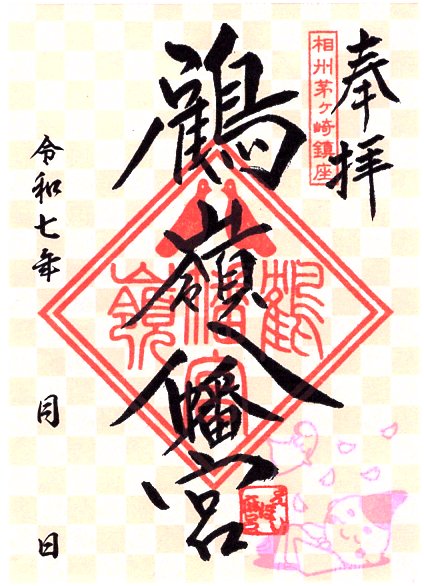 奉拝
相州茅ヶ崎鎮座
鶴嶺八幡宮
令和七年 月 日
鶴嶺